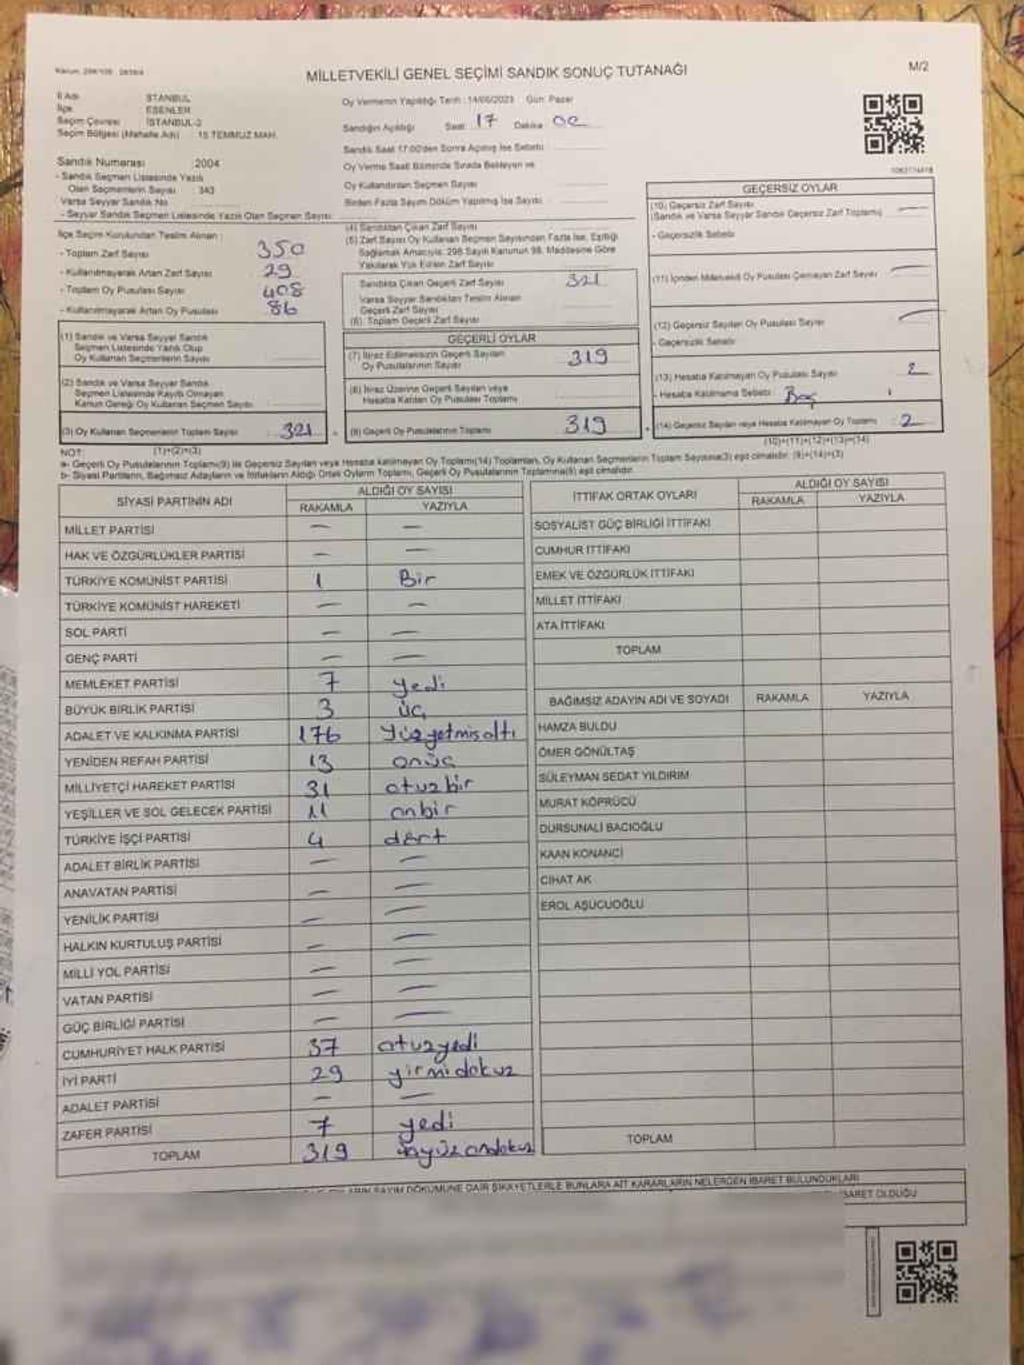 MİLLETVEKİLİ GENEL SEÇİMİ SANDIK SONUÇ TUTANAĞI
M/2
İl Adı İSTANBUL
İlçe ESENLER
Seçim Çevresi İSTANBUL-2
Seçim Bölgesi (Mahalle Adı) 15 TEMMUZ MAH.
Sandık Numarası :2004
- Sandık Seçmen Listesinde Yazılı
Olan Seçmenlerin Sayısı : 343
Varsa Seyyar Sandık No
- Seyyar Sandık Seçmen Listesinde Yazılı Olan Seçmen Sayısı
Oy Vermenin Yapıldığı Tarih : 14/05/2023 Gün: Pazar
Sandığın Açıldığı Saat 17 Dakika 00
Sandık Saat 17:00'den Sonra Açılmış İse Sebebi
Oy Verme Saati Bitiminde Sırada Bekleyen ve
Oy Kullandırılan Seçmen Sayısı
Birden Fazla Sayım Döküm Yapılmış İse Sayısı
İlçe Seçim Kurulundan Teslim Alınan
- Toplam Zarf Sayısı 350
- Kullanılmayarak Artan Zarf Sayısı 29
- Toplam Oy Pusulası Sayısı 408
- Kullanılmayarak Artan Oy Pusulası 86
(1) Sandık ve Varsa Seyyar Sandık
Seçmen Listesinde Yazılı Olup
Oy Kullanan Seçmenlerin Sayısı
(2) Sandık ve Varsa Seyyar Sandık
Seçmen Listesinde Kayıtlı Olmayan
Kanun Gereği Oy Kullanan Seçmen Sayısı
(3) Oy Kullanan Seçmenlerin Toplam Sayısı 321
(1)+(2)=(3)
(4) Sandıktan Çıkan Zarf Sayısı
(5) Zarf Sayısı Oy Kullanan Seçmen Sayısından Fazla İse, Eşitliği
Sağlamak Amacıyla, 298 Sayılı Kanunun 98. Maddesine Göre
Yakılarak Yok Edilen Zarf Sayısı
Sandıkta Çıkan Geçerli Zarf Sayısı 321
Varsa Seyyar Sandıktan Teslim Alınan
Geçerli Zarf Sayısı
(6) Toplam Geçerli Zarf Sayısı
GEÇERLİ OYLAR
(7) İtiraz Edilmeksizin Geçerli Sayılan
Oy Pusulalarının Sayısı 319
(8) İtiraz Üzerine Geçerli Sayılan veya
Hesaba Katılan Oy Pusulası Toplamı
(9) Geçerli Oy Pusulalarının Toplamı 319
GEÇERSİZ OYLAR
(10) Geçersiz Zarf Sayısı —
(Sandık ve Varsa Seyyar Sandık Geçersiz Zarf Toplamı)
- Geçersizlik Sebebi
(11) İçinden Milletvekili Oy Pusulası Çıkmayan Zarf Sayısı —
(12) Geçersiz Sayılan Oy Pusulası Sayısı —
- Geçersizlik Sebebi
(13) Hesaba Katılmayan Oy Pusulası Sayısı 2
- Hesaba Katılmama Sebebi: Boş
(14) Geçersiz Sayılan veya Hesaba Katılmayan Oy Toplamı 2
(10)+(11)+(12)+(13)=(14)
NOT:
a- Geçerli Oy Pusulalarının Toplamı(9) ile Geçersiz Sayılan veya Hesaba katılmayan Oy Toplamı(14) Toplamları, Oy Kullanan Seçmenlerin Toplam Sayısına(3) eşit olmalıdır. (9)+(14)=(3)
b- Siyasi Partilerin, Bağımsız Adayların ve İttifakların Aldığı Ortak Oyların Toplamı, Geçerli Oy Pusulalarının Toplamına(9) eşit olmalıdır.
SİYASİ PARTİNİN ADI ALDIĞI OY SAYISI
RAKAMLA YAZIYLA
MİLLET PARTİSİ — —
HAK VE ÖZGÜRLÜKLER PARTİSİ — —
TÜRKİYE KOMÜNİST PARTİSİ 1 Bir
TÜRKİYE KOMÜNİST HAREKETİ — —
SOL PARTİ — —
GENÇ PARTİ — —
MEMLEKET PARTİSİ 7 yedi
BÜYÜK BİRLİK PARTİSİ 3 üç
ADALET VE KALKINMA PARTİSİ 176 yüzyetmisaltı
YENİDEN REFAH PARTİSİ 13 onüç
MİLLİYETÇİ HAREKET PARTİSİ 31 otuzbir
YEŞİLLER VE SOL GELECEK PARTİSİ 11 onbir
TÜRKİYE İŞÇİ PARTİSİ 4 dört
ADALET BİRLİK PARTİSİ — —
ANAVATAN PARTİSİ — —
YENİLİK PARTİSİ — —
HALKIN KURTULUŞ PARTİSİ — —
MİLLİ YOL PARTİSİ — —
VATAN PARTİSİ — —
GÜÇ BİRLİĞİ PARTİSİ — —
CUMHURİYET HALK PARTİSİ 37 otuzyedi
İYİ PARTİ 29 yirmidokuz
ADALET PARTİSİ — —
ZAFER PARTİSİ 7 yedi
TOPLAM 319 üçyüzondokuz
İTTİFAK ORTAK OYLARI ALDIĞI OY SAYISI
RAKAMLA YAZIYLA
SOSYALİST GÜÇ BİRLİĞİ İTTİFAKI
CUMHUR İTTİFAKI
EMEK VE ÖZGÜRLÜK İTTİFAKI
MİLLET İTTİFAKI
ATA İTTİFAKI
TOPLAM
BAĞIMSIZ ADAYIN ADI VE SOYADI RAKAMLA YAZIYLA
HAMZA BULDU
ÖMER GÖNÜLTAŞ
SÜLEYMAN SEDAT YILDIRIM
MURAT KÖPRÜCÜ
DURSUNALİ BACIOĞLU
KAAN KONANCI
CİHAT AK
EROL AŞUCUOĞLU
TOPLAM
SAYIM DÖKÜMÜNE DAİR ŞİKAYETLERLE BUNLARA AİT KARARLARIN NELERDEN İBARET BULUNDUKLARI
İBARET OLDUĞU